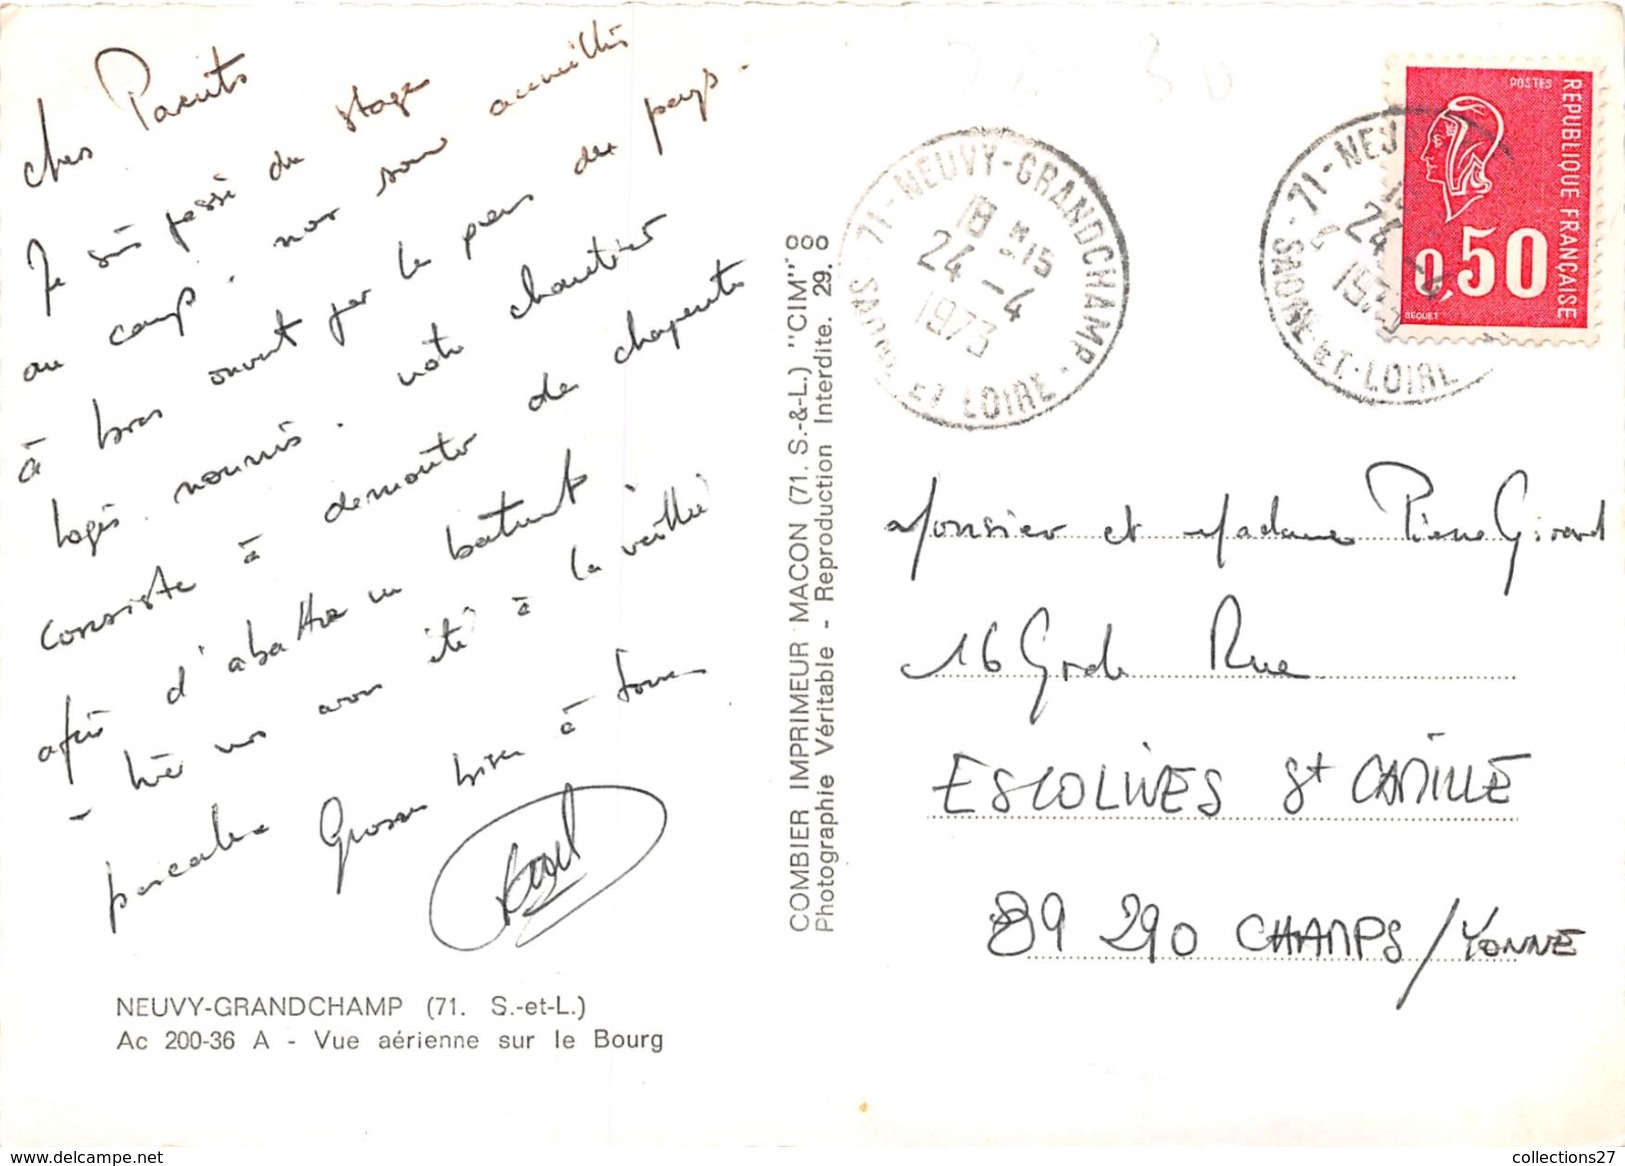 chers Parents
Je suis passé du stage
au camp. nous sommes accueillis
à bras ouvert par les gens du pays.
logés nourris. notre chantier
consiste à démonter de charpente
afin d'abattre un batiment
hier nous avons été à la veillée
pascale. Grosses bises à tous
NEUVY-GRANDCHAMP (71. S.-et-L.)
Ac 200-36 A - Vue aérienne sur le Bourg
COMBIER IMPRIMEUR MACON (71. S.-&-L.) "CIM"
Photographie Véritable - Reproduction Interdite. 29. 000
71 - NEUVY-GRANDCHAMP
18H15
24 -4
1973
SAONE ET LOIRE
71 - NEU
24 -4
197
SAONE-ET-LOIRE
POSTES
REPUBLIQUE FRANÇAISE
0,50
BEQUET
Monsieur et Madame Pierre Girard
16 Grde Rue
ESCOLIVES St CAMILLE
89 290 CHAMPS/YONNE
collections27